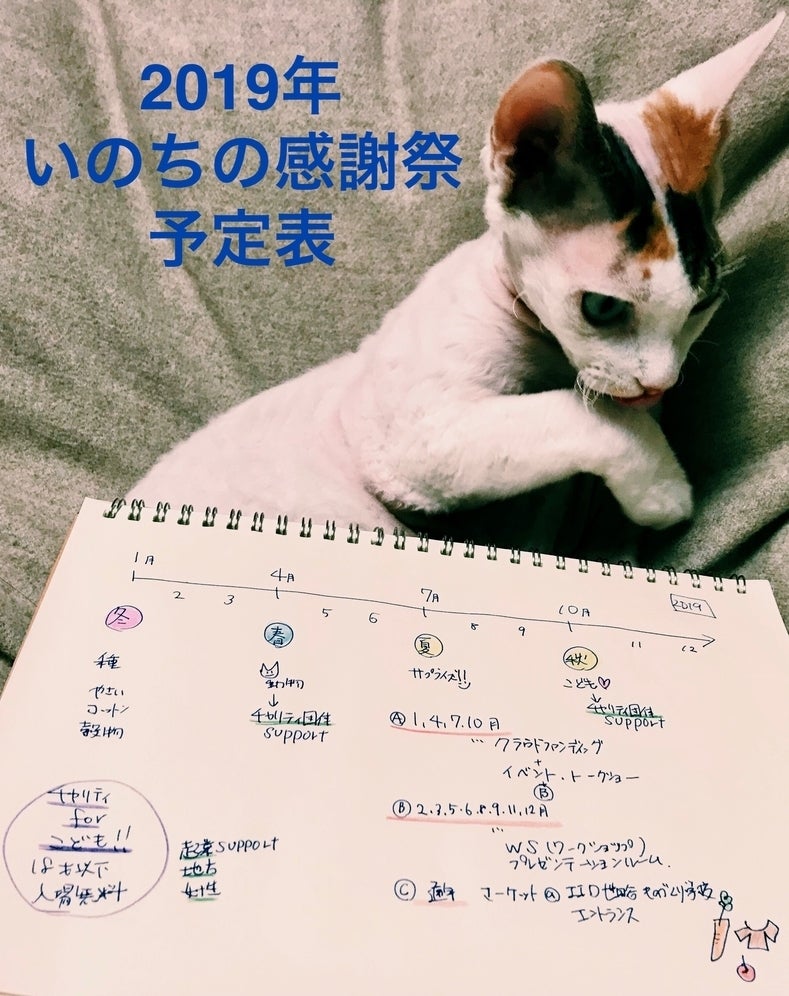 2019年
いのちの感謝祭
予定表
1月 2 3 4月 5 6 7月 8 9 10月 11 12
2019
冬
種
やさい
コットン
穀物
春
動物
↓
チャリティ団体
support
夏
サプライズ!!
秋
こども♡
↓
チャリティ団体
support
Ⓐ 1,4,7,10月
… クラウドファンディング
+
イベント・トークショー
Ⓑ
Ⓑ 2・3・5・6・8・9・11・12月
…
WS(ワークショップ)
プレゼンテーションルーム.
Ⓒ 通年 マーケット@IID 世田谷ものづくり学校
エントランス
チャリティ
for
こども!!
18才以下
入場無料
起業support
地方
女性